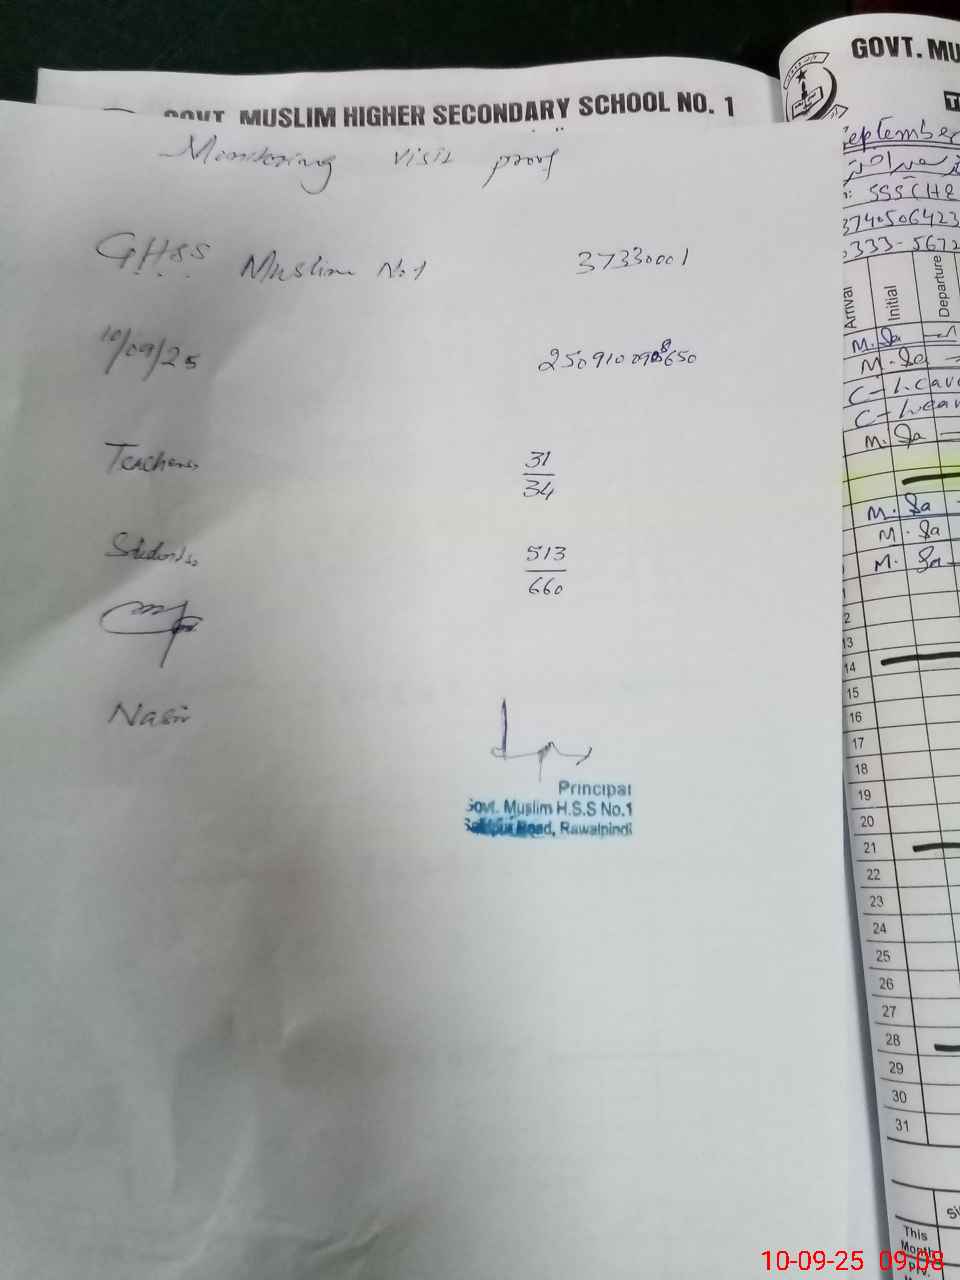 GOVT. MUSLIM HIGHER SECONDARY SCHOOL NO. 1
Monitoring visit proof
GHSS Muslim No.1 37330001
10/09/25 2509100908650
Teachers 31/34
Students 513/660
Nasir
Principal
Govt. Muslim H.S.S No.1
Road, Rawalpindi
GOVT. MU
T
September
SSS (H2
3740506423
0333-5672
Arrival Initial Departure
M. Sa
M. Sa
C- Leave
C- Leave
M. Sa
M. Sa
M. Sa
M. Sa
12
13
14
15
16
17
18
19
20
21
22
23
24
25
26
27
28
29
30
31
This
Month
Prv.
10-09-25 09:08